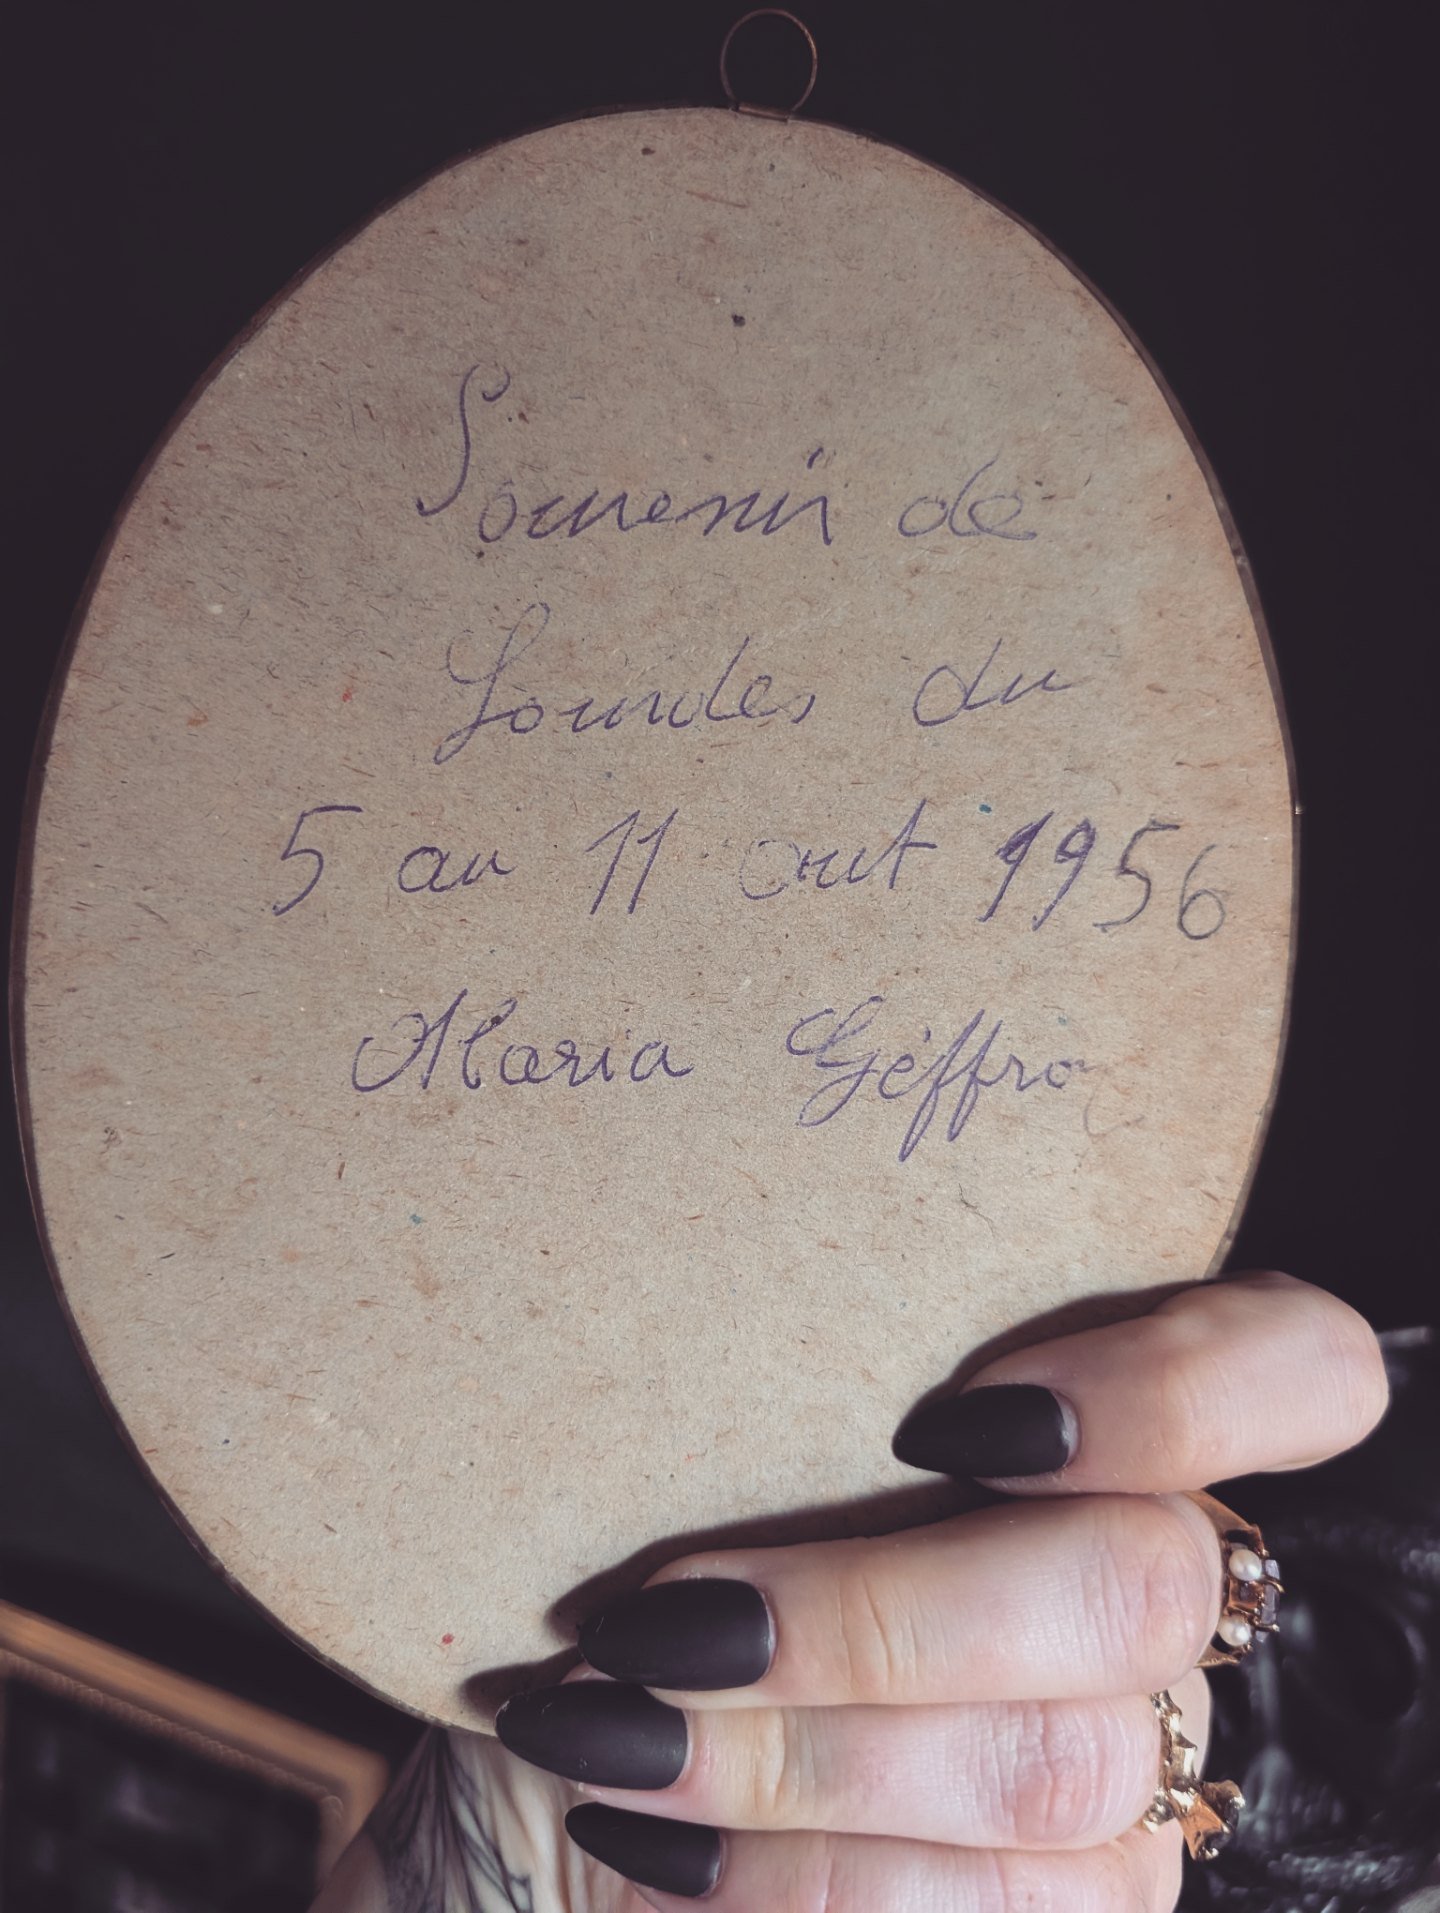 Souvenir de
Lourdes du
5 au 11 out 1956
Maria Géffro